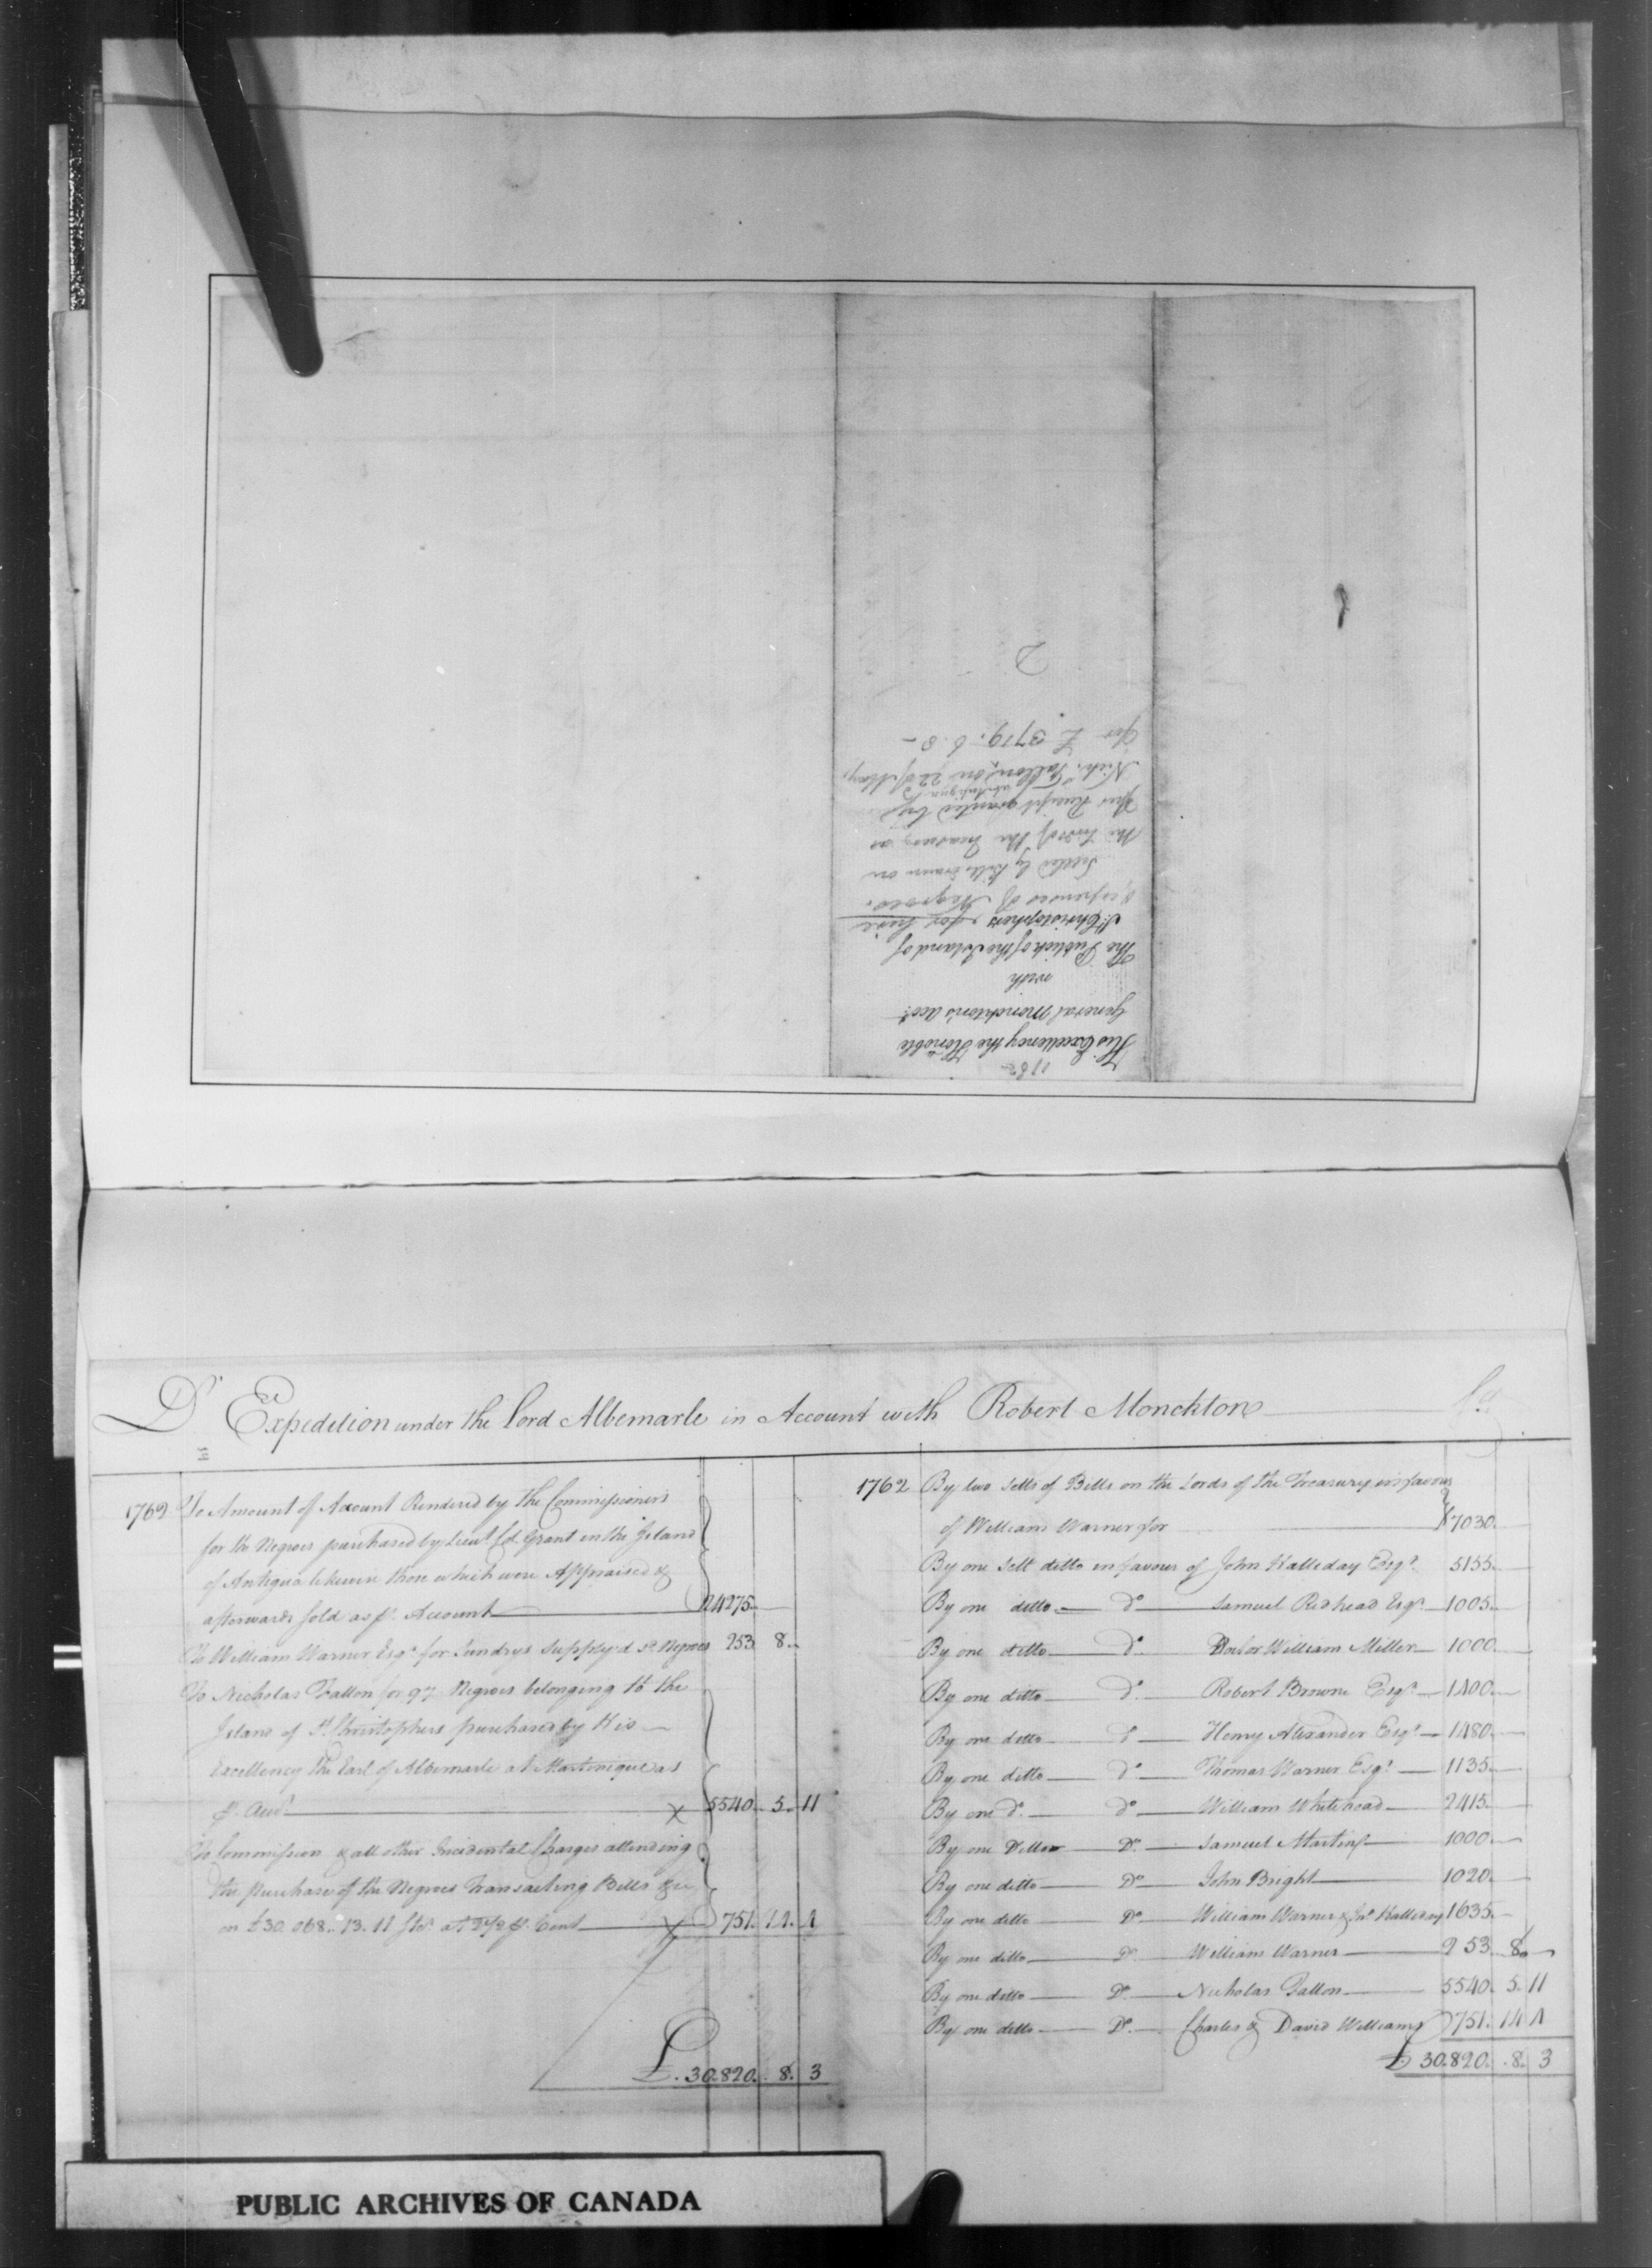 1762
His Excellency the Honoble
General Monckton's Acct.
with
The Publick of the Island of
St. Christophers for hire
& expences of Negroes.
Settled by Bills drawn on
the Lords of the Treasury as
per Receipt granted by
at Antigua
Nichs. Fallon, on 22d of May,
for £ 3719. 6. 8 -
2
Dr. Expedition under the Lord Albemarle in Account with Robert Monckton
1762 To Amount of Account Rendered by the Commissioners
for the Negroes purchased by Lieut. Col. Grant in the Island
of Antigua likewise those which were Appraised &
afterwards sold as pr. Account 24275
To William Warner Esqr. for Sundrys supply'd sd. Negroes 253 8
To Nicholas Fallon for 97 Negroes belonging to the
Island of St. Christophers purchased by His
Excellency the Earl of Albemarle at Martinique as
pr. X 5540 5 11
To Commission & all other Incidental Charges attending
the purchase of the Negroes Transacting Bills &c
on £30.068.. 13. 11 Stg. at 2 1/2 pr. Cent X 751. 14. 4
£. 30.820. 8. 3
1762 By two Setts of Bills on the Lords of the Treasury in favour
of William Warner for 7030
By one Sett ditto in favour of John Halleday Esqr. 5155
By one ditto do Samuel Redhead Esqr. 1005
By one ditto do Doctor William Miller 1000
By one ditto do Robert Browne Esqr. 1400
By one ditto do Henry Alexander Esqr. 1480
By one ditto do Thomas Warner Esqr. 1135
By one do. do William Whitehead 2415
By one Ditto Do. Samuel Martin 1000
By one ditto Do John Bright 1020
By one ditto Do William Warner & Jno. Halleday 1635
By one ditto Do William Warner 253 8
By one ditto Do Nicholas Fallon 5540. 5. 11
By one ditto Do. Charles & David Williams 751. 14 4
£ 30.820. 8. 3
PUBLIC ARCHIVES OF CANADA